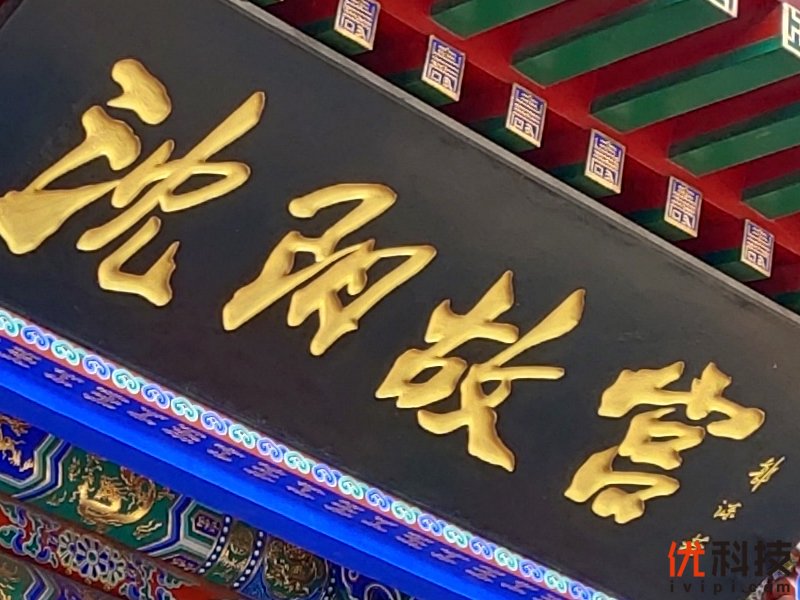 沈阳故宫
优科技
ivipi.com